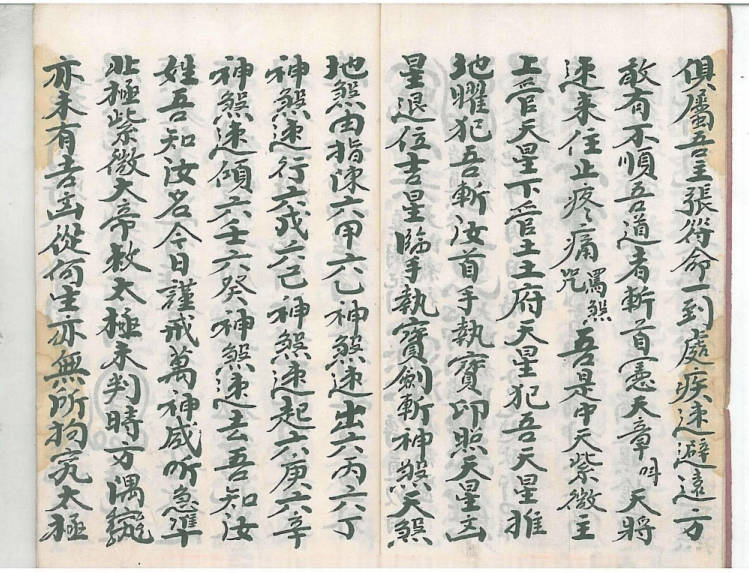 俱屬吾主張符命一到處疾速避遠方
敢有不順吾道者斬首憲天章 叫 天將
速來住止疼痛咒 罵煞 吾是中天紫微主
上管天星下管土王府天星犯吾天星推
地曜犯吾斬汝首手執寶印照天星凶
星退位吉星臨手執寶劍斬神煞天煞
地煞由指陳六甲六乙神煞速出六丙六丁
神煞速行六戊六己神煞速起六庚六辛
神煞速傾六壬六癸神煞速去吾知汝
姓吾知汝名今日謹戒萬神咸听急準
北極紫微大帝敕太極未判時方隅
亦未有吉凶從何生亦無所拘究太極